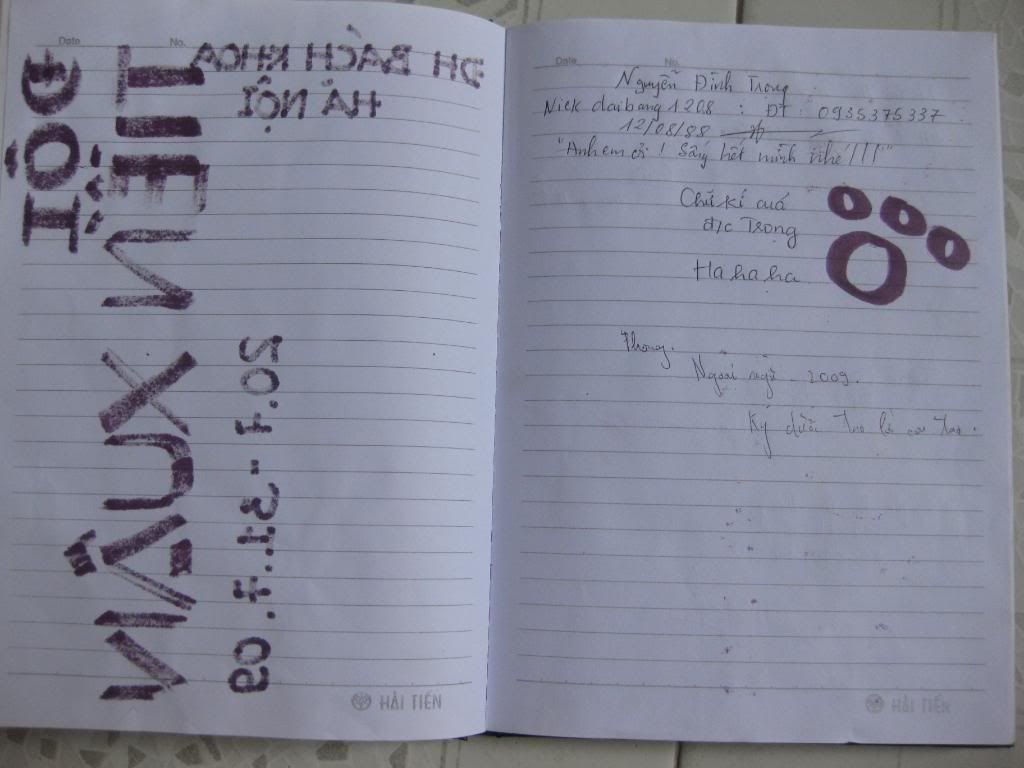 Date No.
ĐH BÁCH KHOA
HÀ NỘI
ĐỘI
TIỆN
XUÂN
20.7 - 31.7.09
HẢI TIẾN
Date No.
Nguyễn Đình Trọng
Nick daibang1208 : ĐT 0935375337
12/08/88
"Anh em ơi! Sống hết mình nhé!!!"
Chữ kí cuả
đ/c Trọng
Ha ha ha
Phong.
Ngoại ngữ - 2009.
Ký dưới
HẢI TIẾN